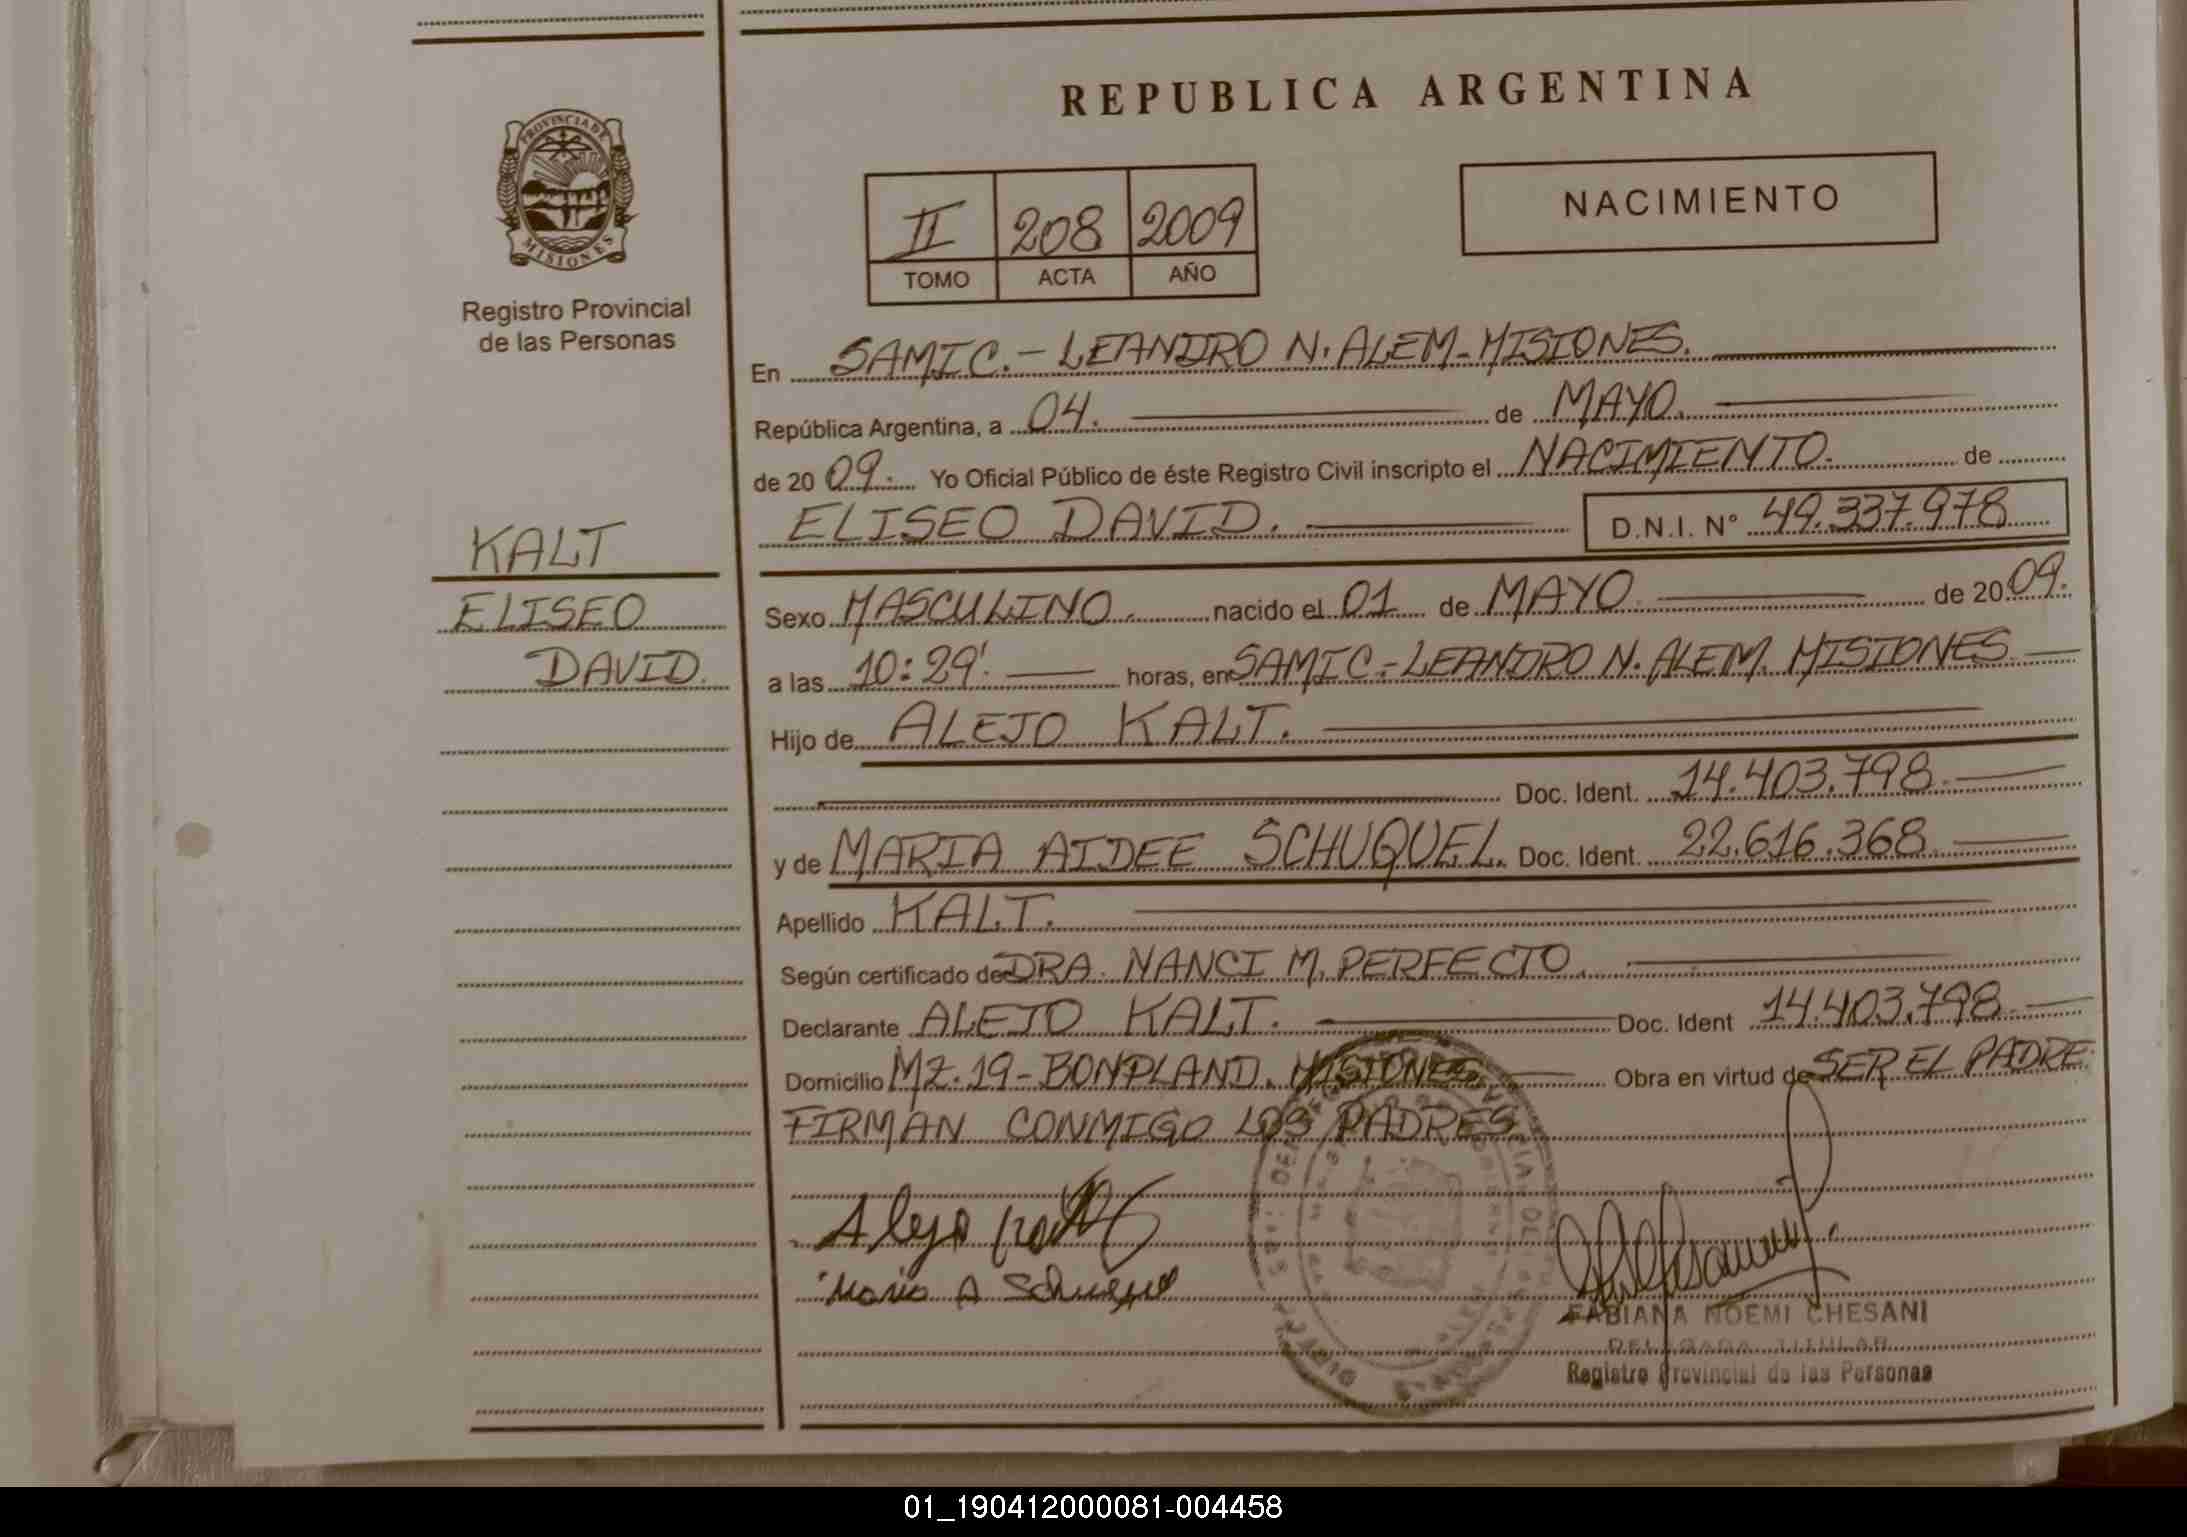 REPUBLICA ARGENTINA
PROVINCIA DE
MISIONES
Registro Provincial
de las Personas
II 208 2009
TOMO ACTA AÑO
NACIMIENTO
KALT
ELISEO
DAVID.
En SAMIC.- LEANDRO N. ALEM - MISIONES.
República Argentina, a 04. de MAYO.
de 20 09. Yo Oficial Público de éste Registro Civil inscripto el NACIMIENTO. de
ELISEO DAVID. D.N.I. N° 49.337.978
Sexo MASCULINO. nacido el 01 de MAYO de 20 09.
a las 10:29' horas, en SAMIC.- LEANDRO N. ALEM. MISIONES
Hijo de ALEJO KALT.
Doc. Ident. 14.403.798.
y de MARIA AIDEE SCHUQUEL. Doc. Ident. 22.616.368
Apellido KALT.
Según certificado de DRA. NANCI M. PERFECTO.
Declarante ALEJO KALT. Doc. Ident 14.403.798
Domicilio MZ.19 - BONPLAND. MISIONES Obra en virtud de SER EL PADRE.
FIRMAN CONMIGO LOS PADRES
Alejo Kalt
Maria A Schuquel
FABIANA NOEMI CHESANI
DELEGADA TITULAR
Registro Provincial de las Personas
01_190412000081-004458